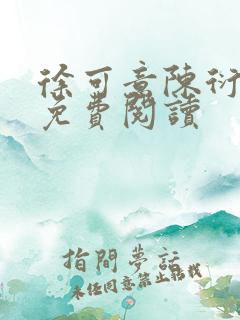 徐可意陳衍
免費閱讀
指間夢話
未经同意禁止转载